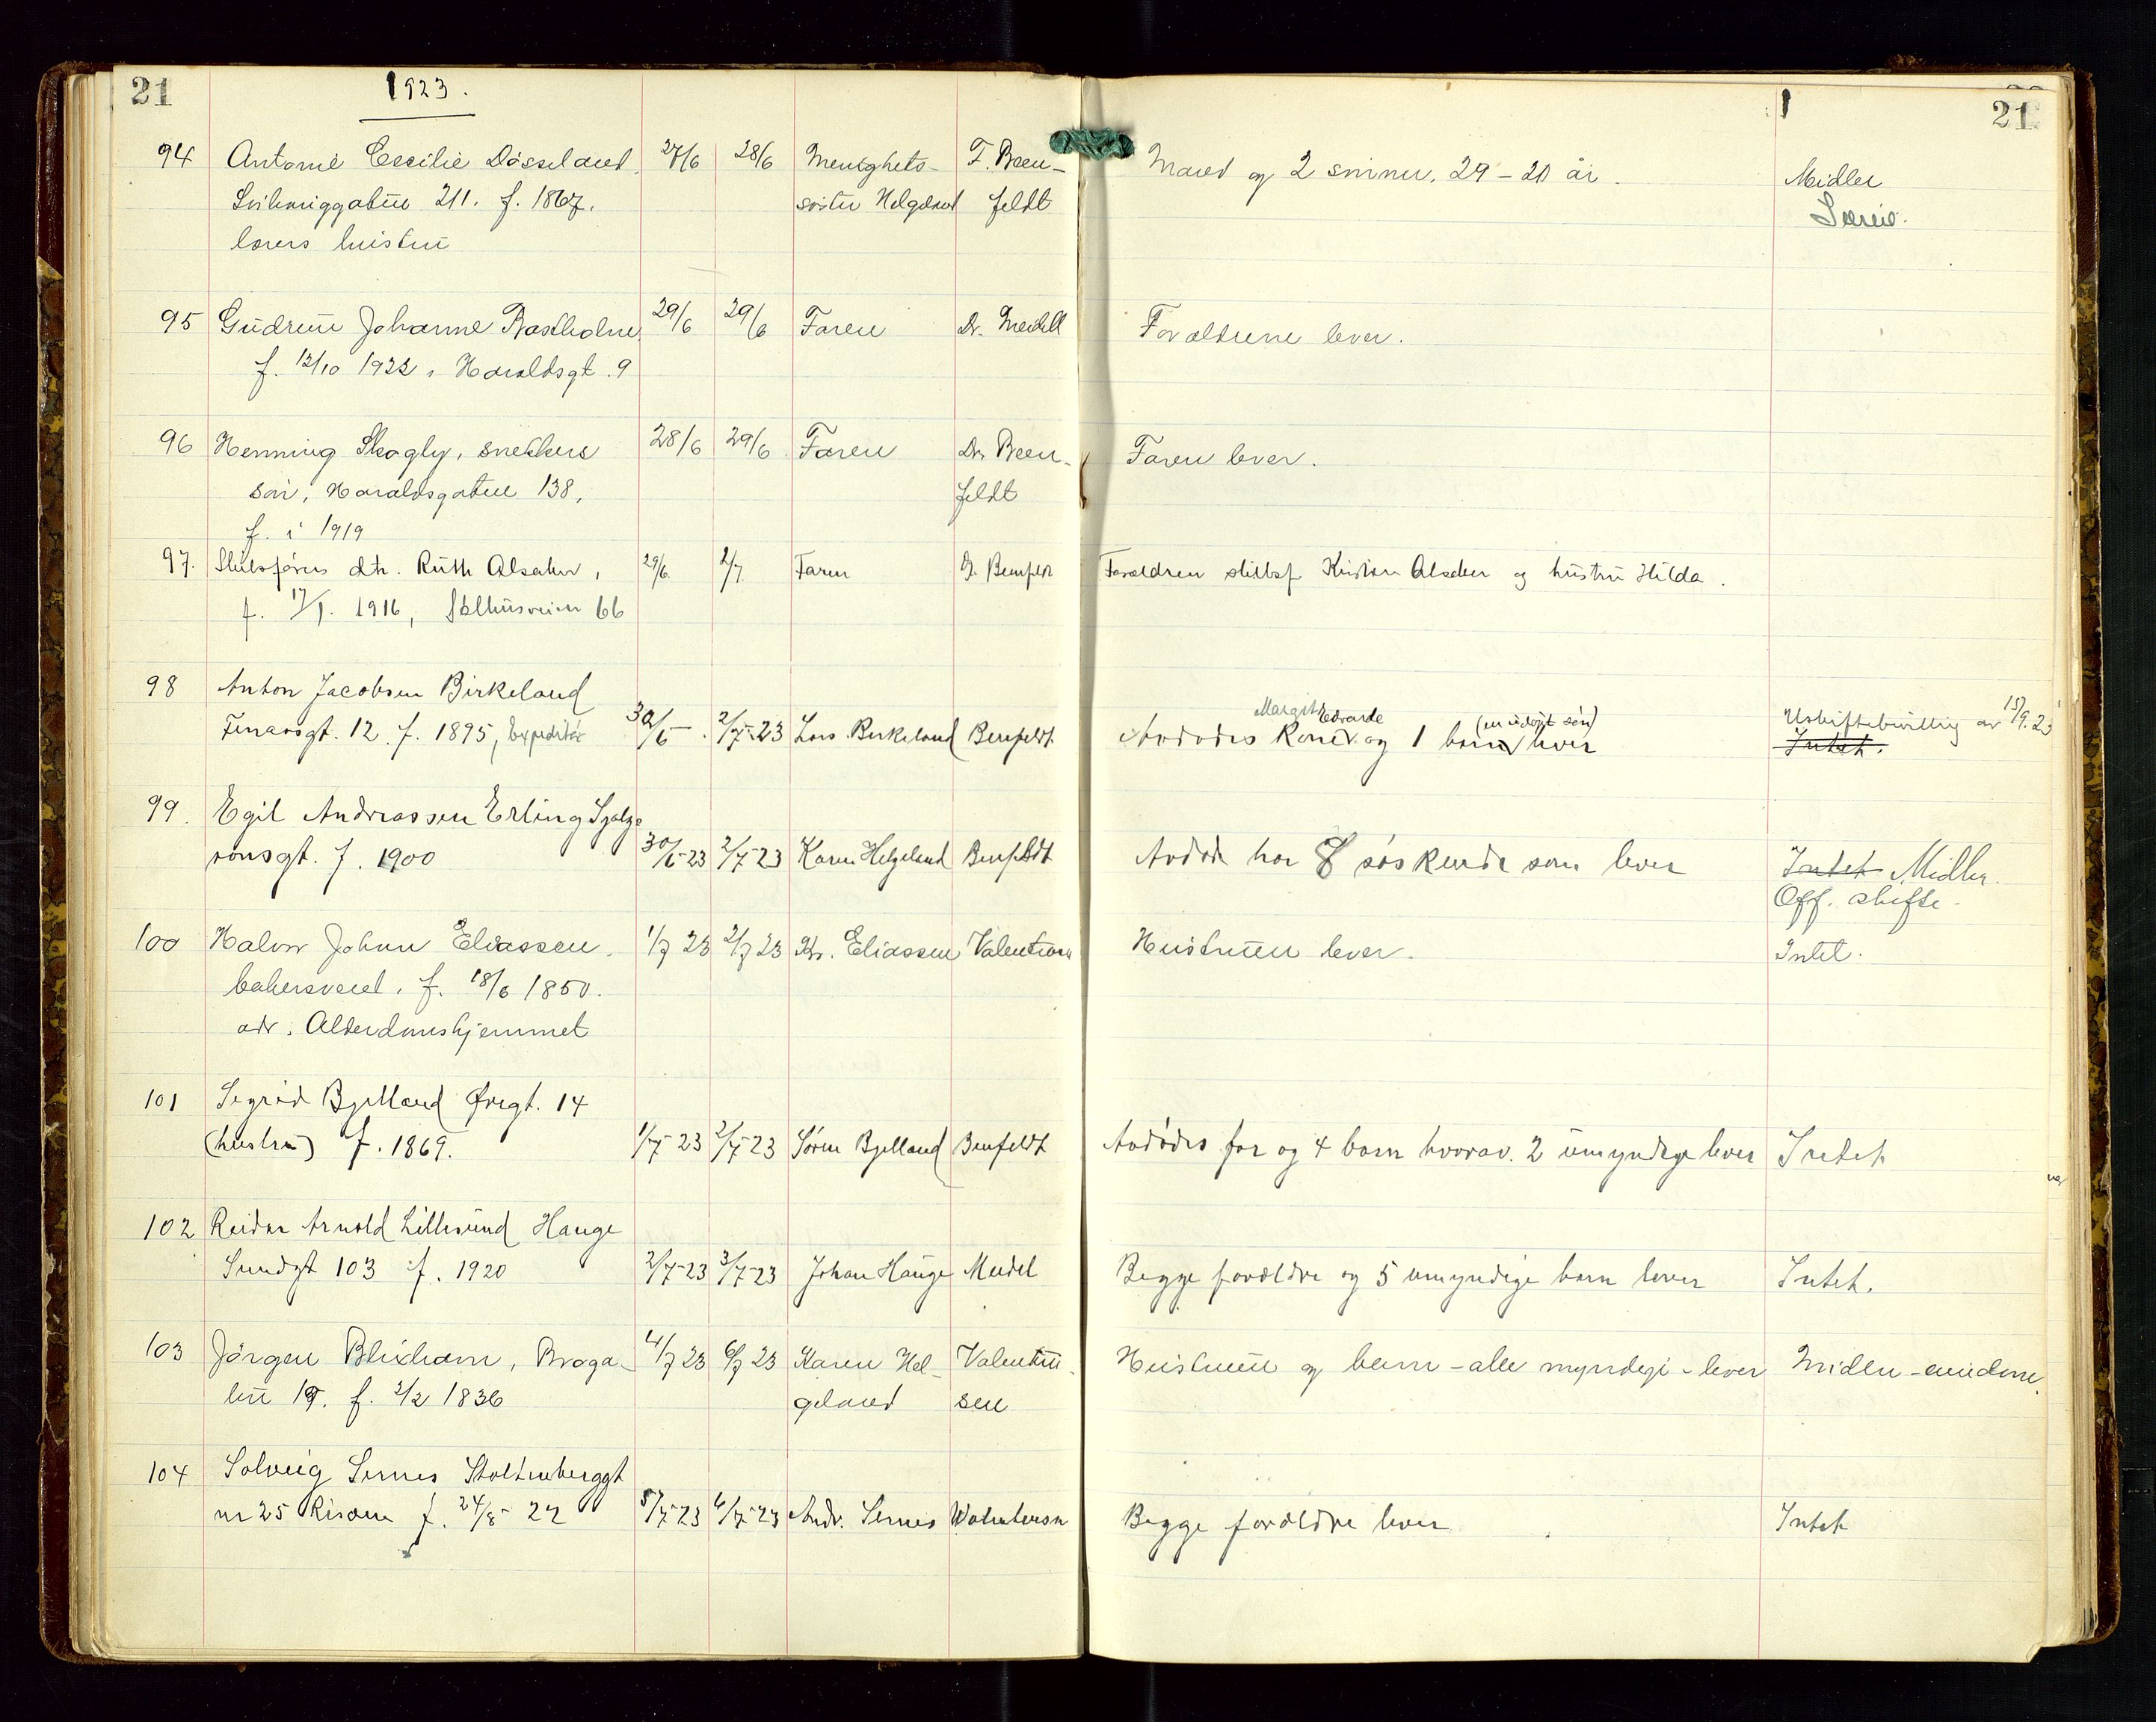 21
1923.
21
94 Antonie Cecilie Dåsseland. 27/6 28/6 Menighets- F. Been- Mand og 2 sønner, 29 - 20 år. Midler
211. f. 1867. søster Helgeland feldt
lærers hustru
95 Gudrun Johanne 29/6 29/6 Faren Dr. Meidell Forældrene lever.
f. 12/10 1922, Haraldsgt. 9
96 Henning Skogly, snekkers 28/6 29/6 Faren Dr. Been- Faren lever.
søn, Haraldsgaten 138, feldt
f. i 1919
97. dtr. Ruth Alsaker, 29/6 2/7 Faren Benfeldt Forældren Kristian Alsaker og hustru Hilda.
f. 17/1. 1916, 66
98 Anton Jacobsen Birkeland
Margit Edvarda (en udøpt søn) Uskiftebevilling av 15/9.23
12. f. 1895, Expeditør 30/6 2/7-23 Lars Birkeland Benfeldt Avdødes kone og 1 barn lever Intet.
99. Egil Andreassen Erling Skjalgs-
sonsgt. f. 1900 30/6-23 2/7-23 Karen Helgeland Benfeldt Avdøde har 8 søskende som lever Intet Midler.
Off. skifte.
100 Halvor Johan Eliassen. 1/7 23 2/7 23 Kr. Eliassen Valentinsen Hustruen lever. Intet.
bakersvend. f. 18/6 1850.
adr. Alderdomshjemmet
101 Sigrid Bjelland Øvregt. 14
(hustru) f. 1869. 1/7-23 2/7-23 Søren Bjelland Benfeldt Avdødes far og 4 barn hvorav 2 umyndige lever Intet
102 Reidar Arnold Lillesund Hauge
Sundgt 103 f. 1920 2/7-23 3/7-23 Johan Hauge Meidel Begge forældre og 5 umyndige barn lever Intet.
103 Jörgen Blixhavn, Braga- 4/7 23 6/7 23 Karen Hel- Valentin- Hustruen og barn - alle myndige - lever Midler - eiendom.
ten 19. f. 2/2 1836 geland sen
104 Solveig Sernes Stoltenberggt
nr 25 Risøen f. 24/8- 22 5/7-23 6/7-23 Andr. Sernes Begge forældre lever Intet